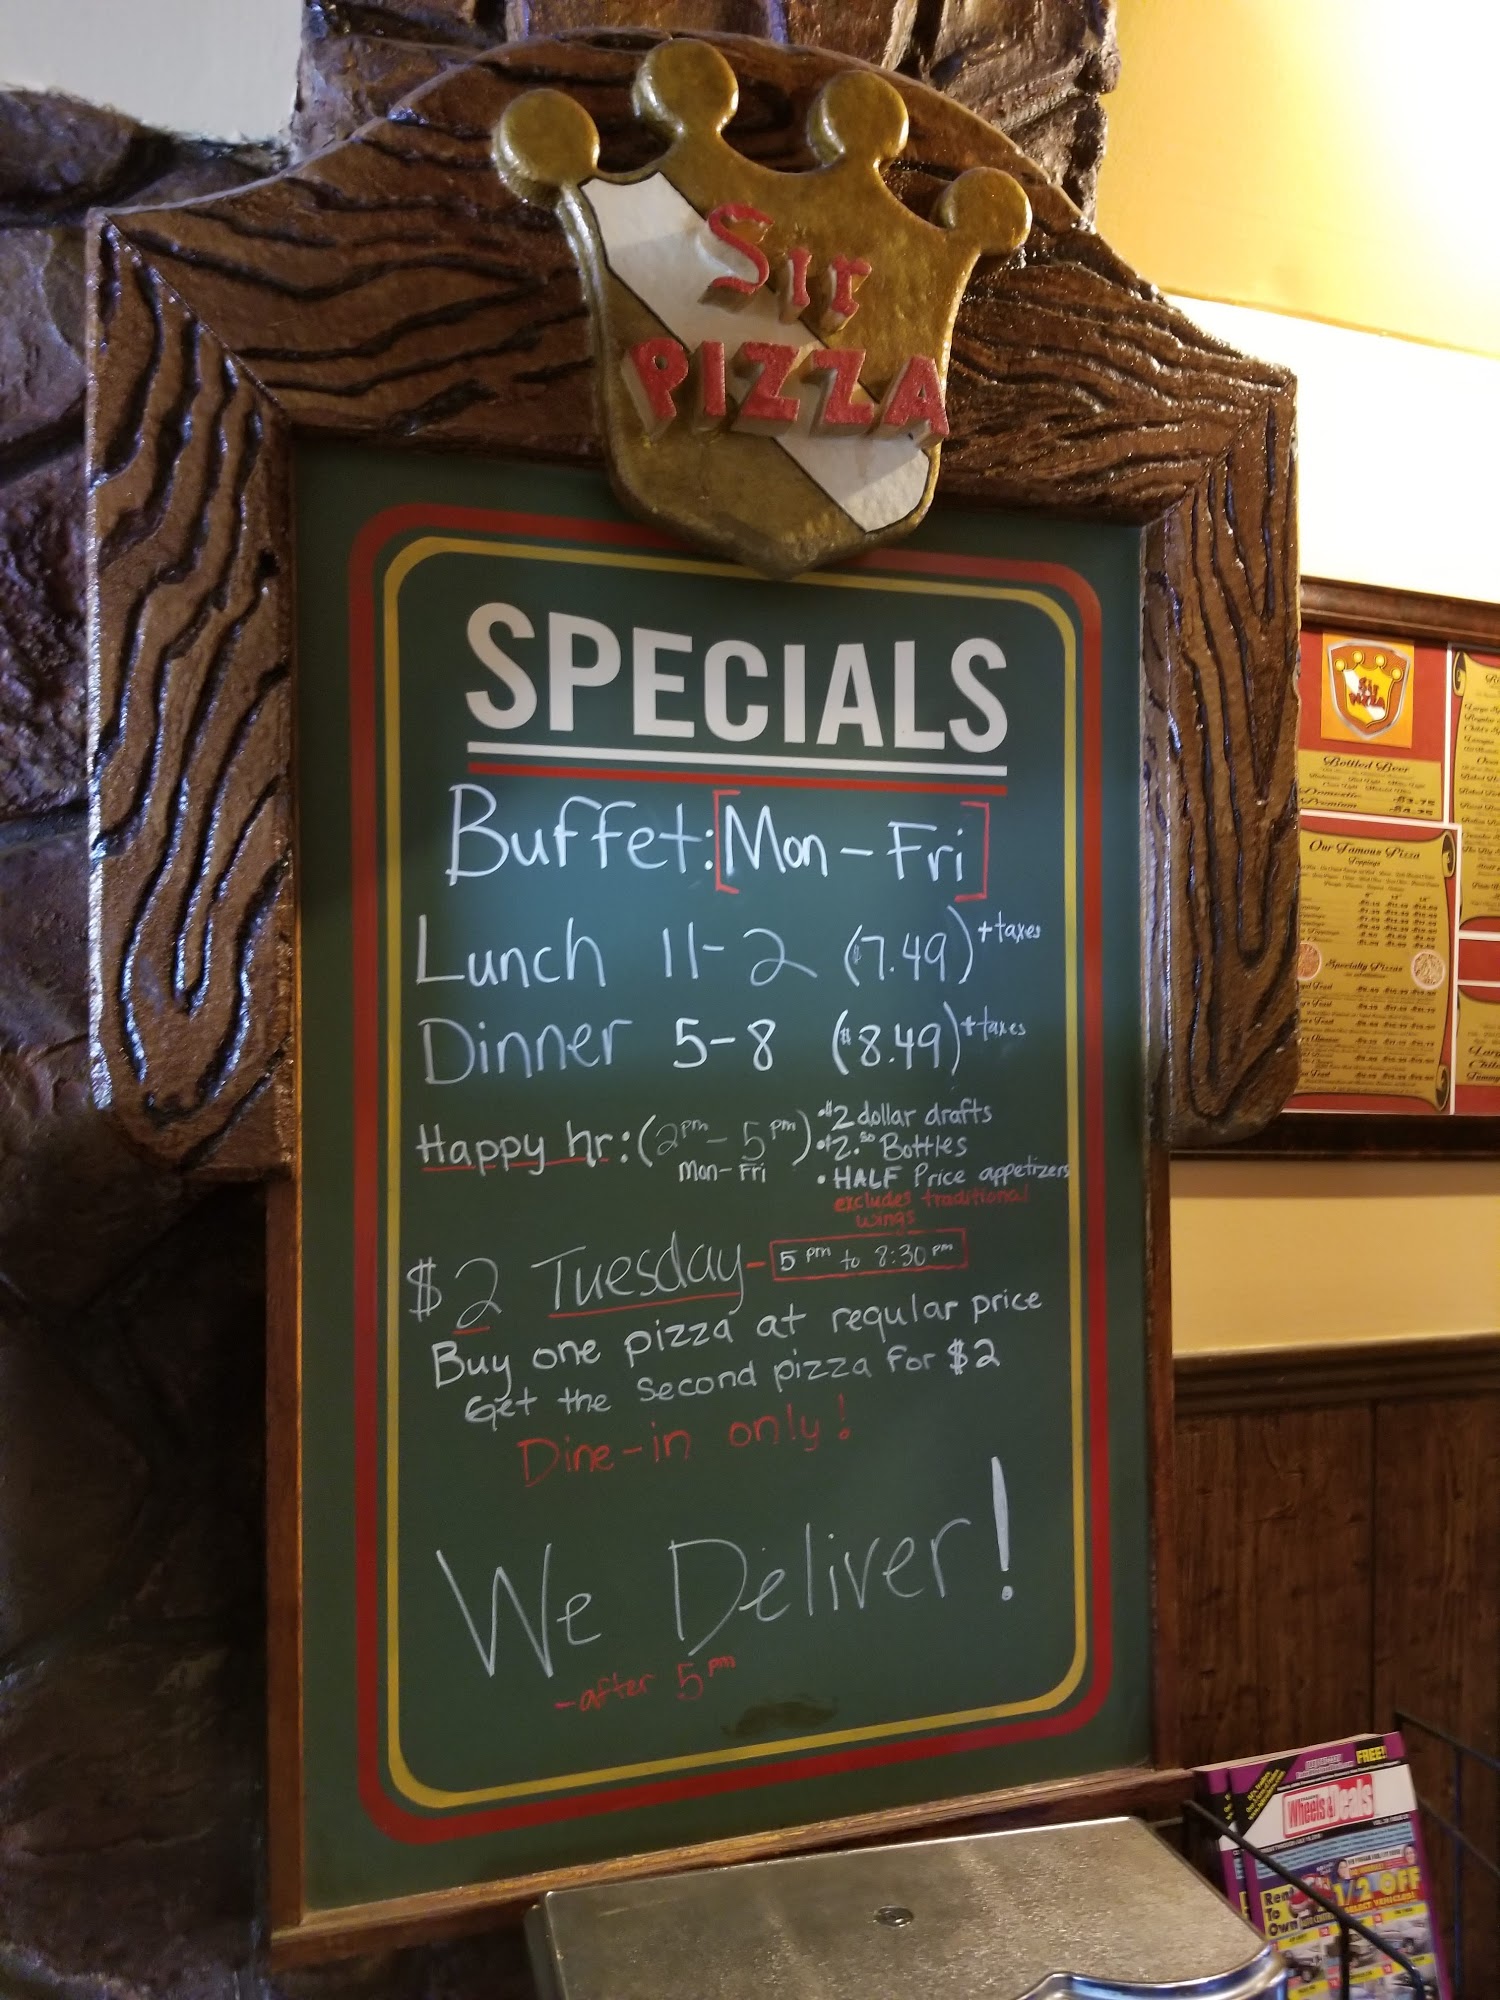 Sir
PIZZA
SPECIALS
Buffet: [Mon - Fri]
Lunch 11-2 ($7.49) + taxes
Dinner 5-8 ($8.49) + taxes
Happy hr: (2pm - 5pm)
Mon-Fri
• $2 dollar drafts
• $2.50 Bottles
• HALF Price appetizers
excludes traditional
wings
$2 Tuesday - 5 pm to 8:30 pm
Buy one pizza at regular price
Get the second pizza for $2
Dine-in only!
We Deliver!
- after 5 pm
Sir
PIZZA
Bottled Beer
Domestic
Premium
Our Famous Pizza
Toppings
Specialty Pizzas
FREE!
Wheels & Deals
Rent
To
Own
1/2 OFF